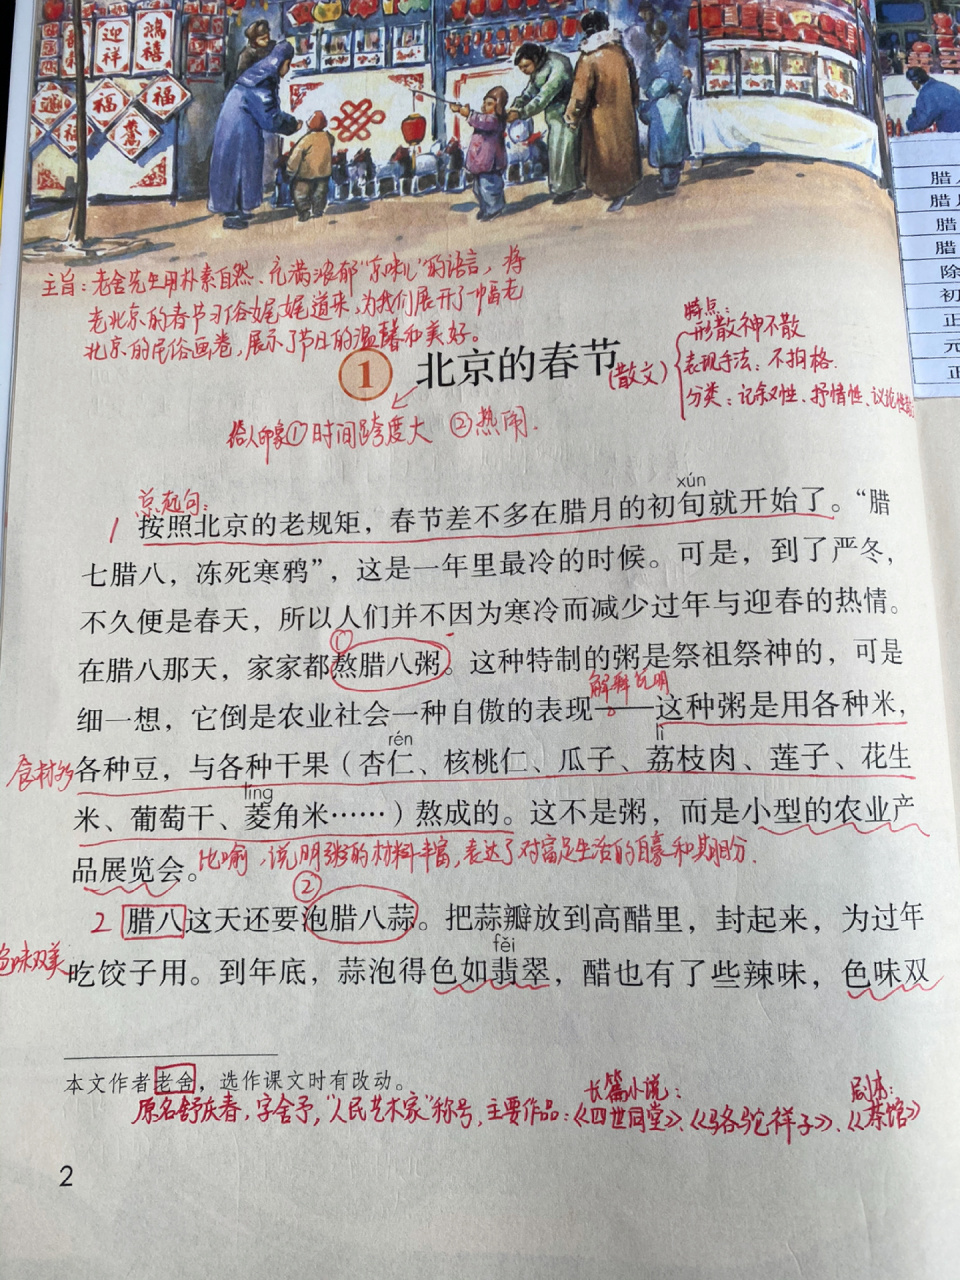 迎祥
鸿禧
福
福
福
腊
腊
腊
腊
除
初
正
元
正
主旨：老舍先生用朴素自然、充满浓郁“京味儿”的语言，将
老北京的春节习俗娓娓道来，为我们展开了一幅老
北京的民俗画卷，展示了节日的温馨和美好。
1 北京的春节
(散文)
特点：
形散神不散
表现手法：不拘格.
分类：记叙性、抒情性、议论性
给人印象①时间跨度大 ②热闹.
总起句：
xún
1 按照北京的老规矩，春节差不多在腊月的初旬就开始了。“腊
七腊八，冻死寒鸦”，这是一年里最冷的时候。可是，到了严冬，
不久便是春天，所以人们并不因为寒冷而减少过年与迎春的热情。
①
在腊八那天，家家都熬腊八粥。这种特制的粥是祭祖祭神的，可是
解释说明
细一想，它倒是农业社会一种自傲的表现——这种粥是用各种米，
rén lì
食材多
各种豆，与各种干果（杏仁、核桃仁、瓜子、荔枝肉、莲子、花生
líng
米、葡萄干、菱角米……）熬成的。这不是粥，而是小型的农业产
品展览会。
比喻，说明粥的材料丰富，表达了对富足生活的自豪和期盼.
②
2 腊八这天还要泡腊八蒜。把蒜瓣放到高醋里，封起来，为过年
fěi
色味双美
吃饺子用。到年底，蒜泡得色如翡翠，醋也有了些辣味，色味双
本文作者老舍，选作课文时有改动。
长篇小说： 剧本：
原名舒庆春，字舍予，“人民艺术家”称号，主要作品：《四世同堂》、《骆驼祥子》、《茶馆》
2